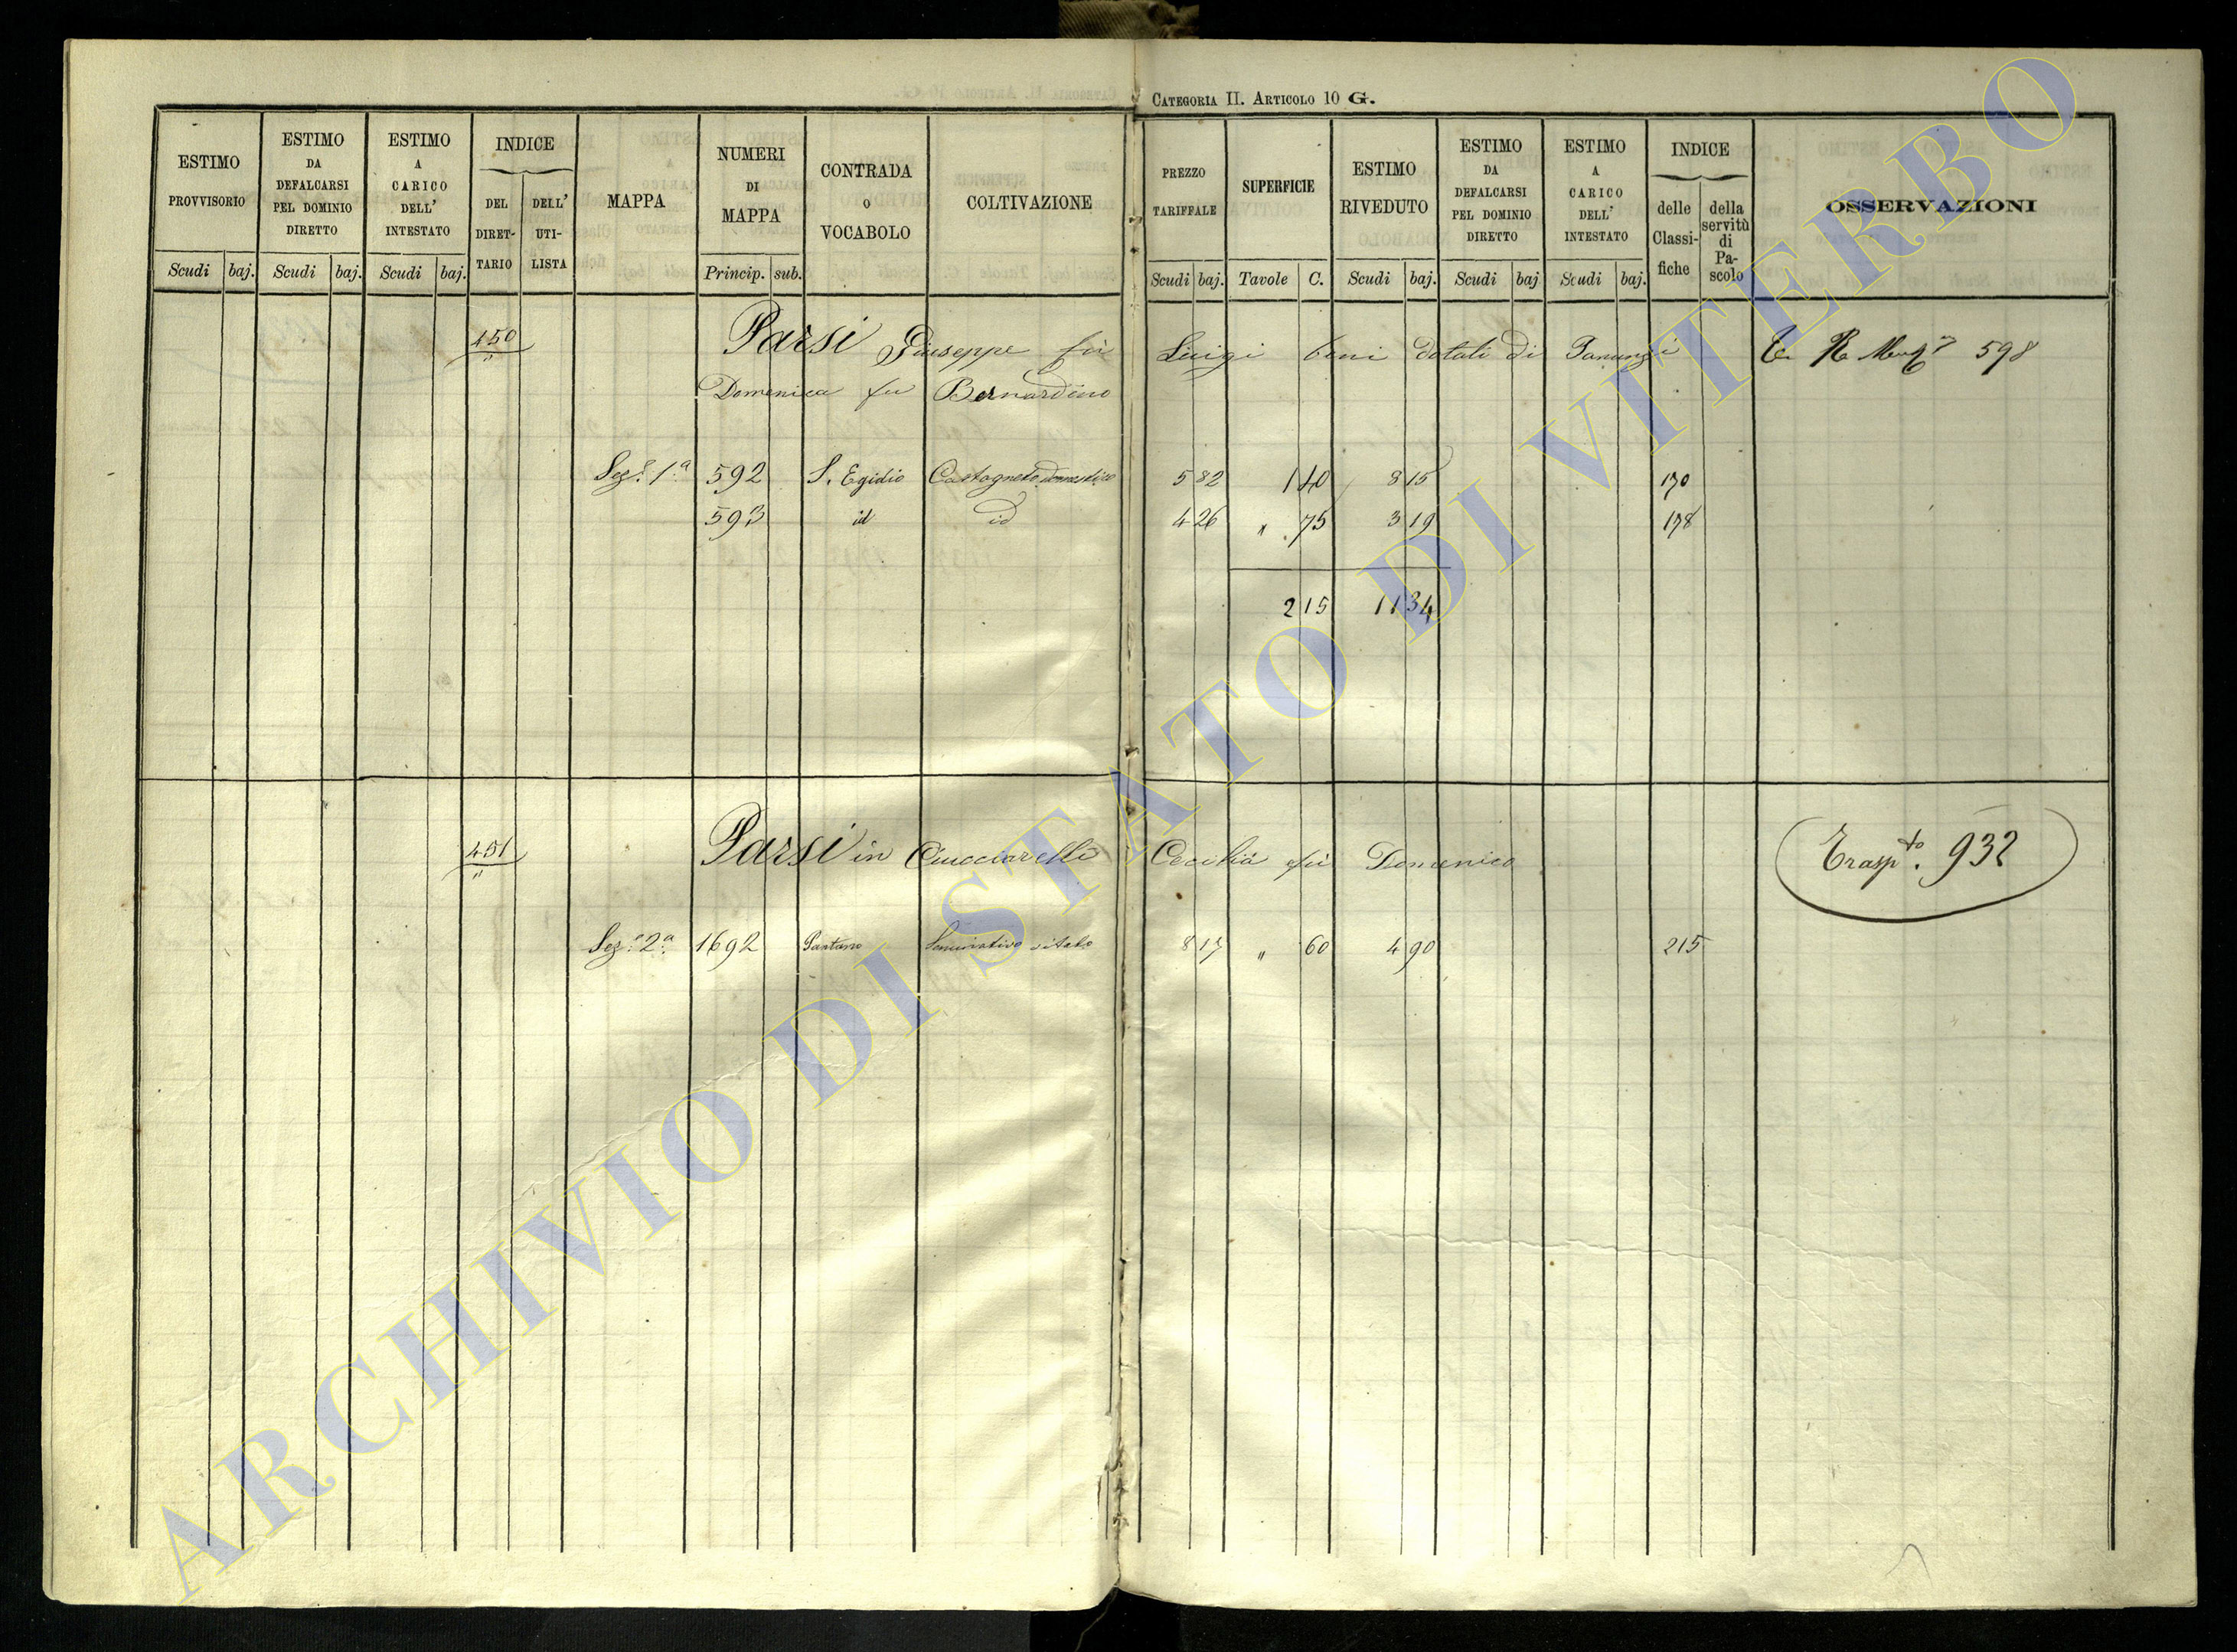 CATEGORIA II. ARTICOLO 10 G.
ESTIMO PROVVISORIO Scudi baj.
ESTIMO DA DEFALCARSI PEL DOMINIO DIRETTO Scudi baj.
ESTIMO A CARICO DELL' INTESTATO Scudi baj.
INDICE DEL DIRET-TARIO DELL' UTI-LISTA
MAPPA
NUMERI DI MAPPA Princip. sub.
CONTRADA o VOCABOLO
COLTIVAZIONE
PREZZO TARIFFALE Scudi baj.
SUPERFICIE Tavole C.
ESTIMO RIVEDUTO Scudi baj.
ESTIMO DA DEFALCARSI PEL DOMINIO DIRETTO Scudi baj
ESTIMO A CARICO DELL' INTESTATO Scudi baj.
INDICE delle Classi-fiche della servitù di Pa-scolo
OSSERVAZIONI
450 Parsi Giuseppe fu Luigi beni dotali di Panunzi 598
Domenica fu Bernardino
Sez.e 1.a 592 S. Egidio Castagneto domestico 5 82 1 40 8 15 170
593 id id 4 26 " 75 3 19 178
2 15 11 34
451 Parsi in Ciucciarelli Cecilia fu Domenico Trasp.to 932
Sez.e 2.a 1692 Pantano Seminativo vitato 8 17 " 60 4 90 215
ARCHIVIO DI STATO DI VITERBO